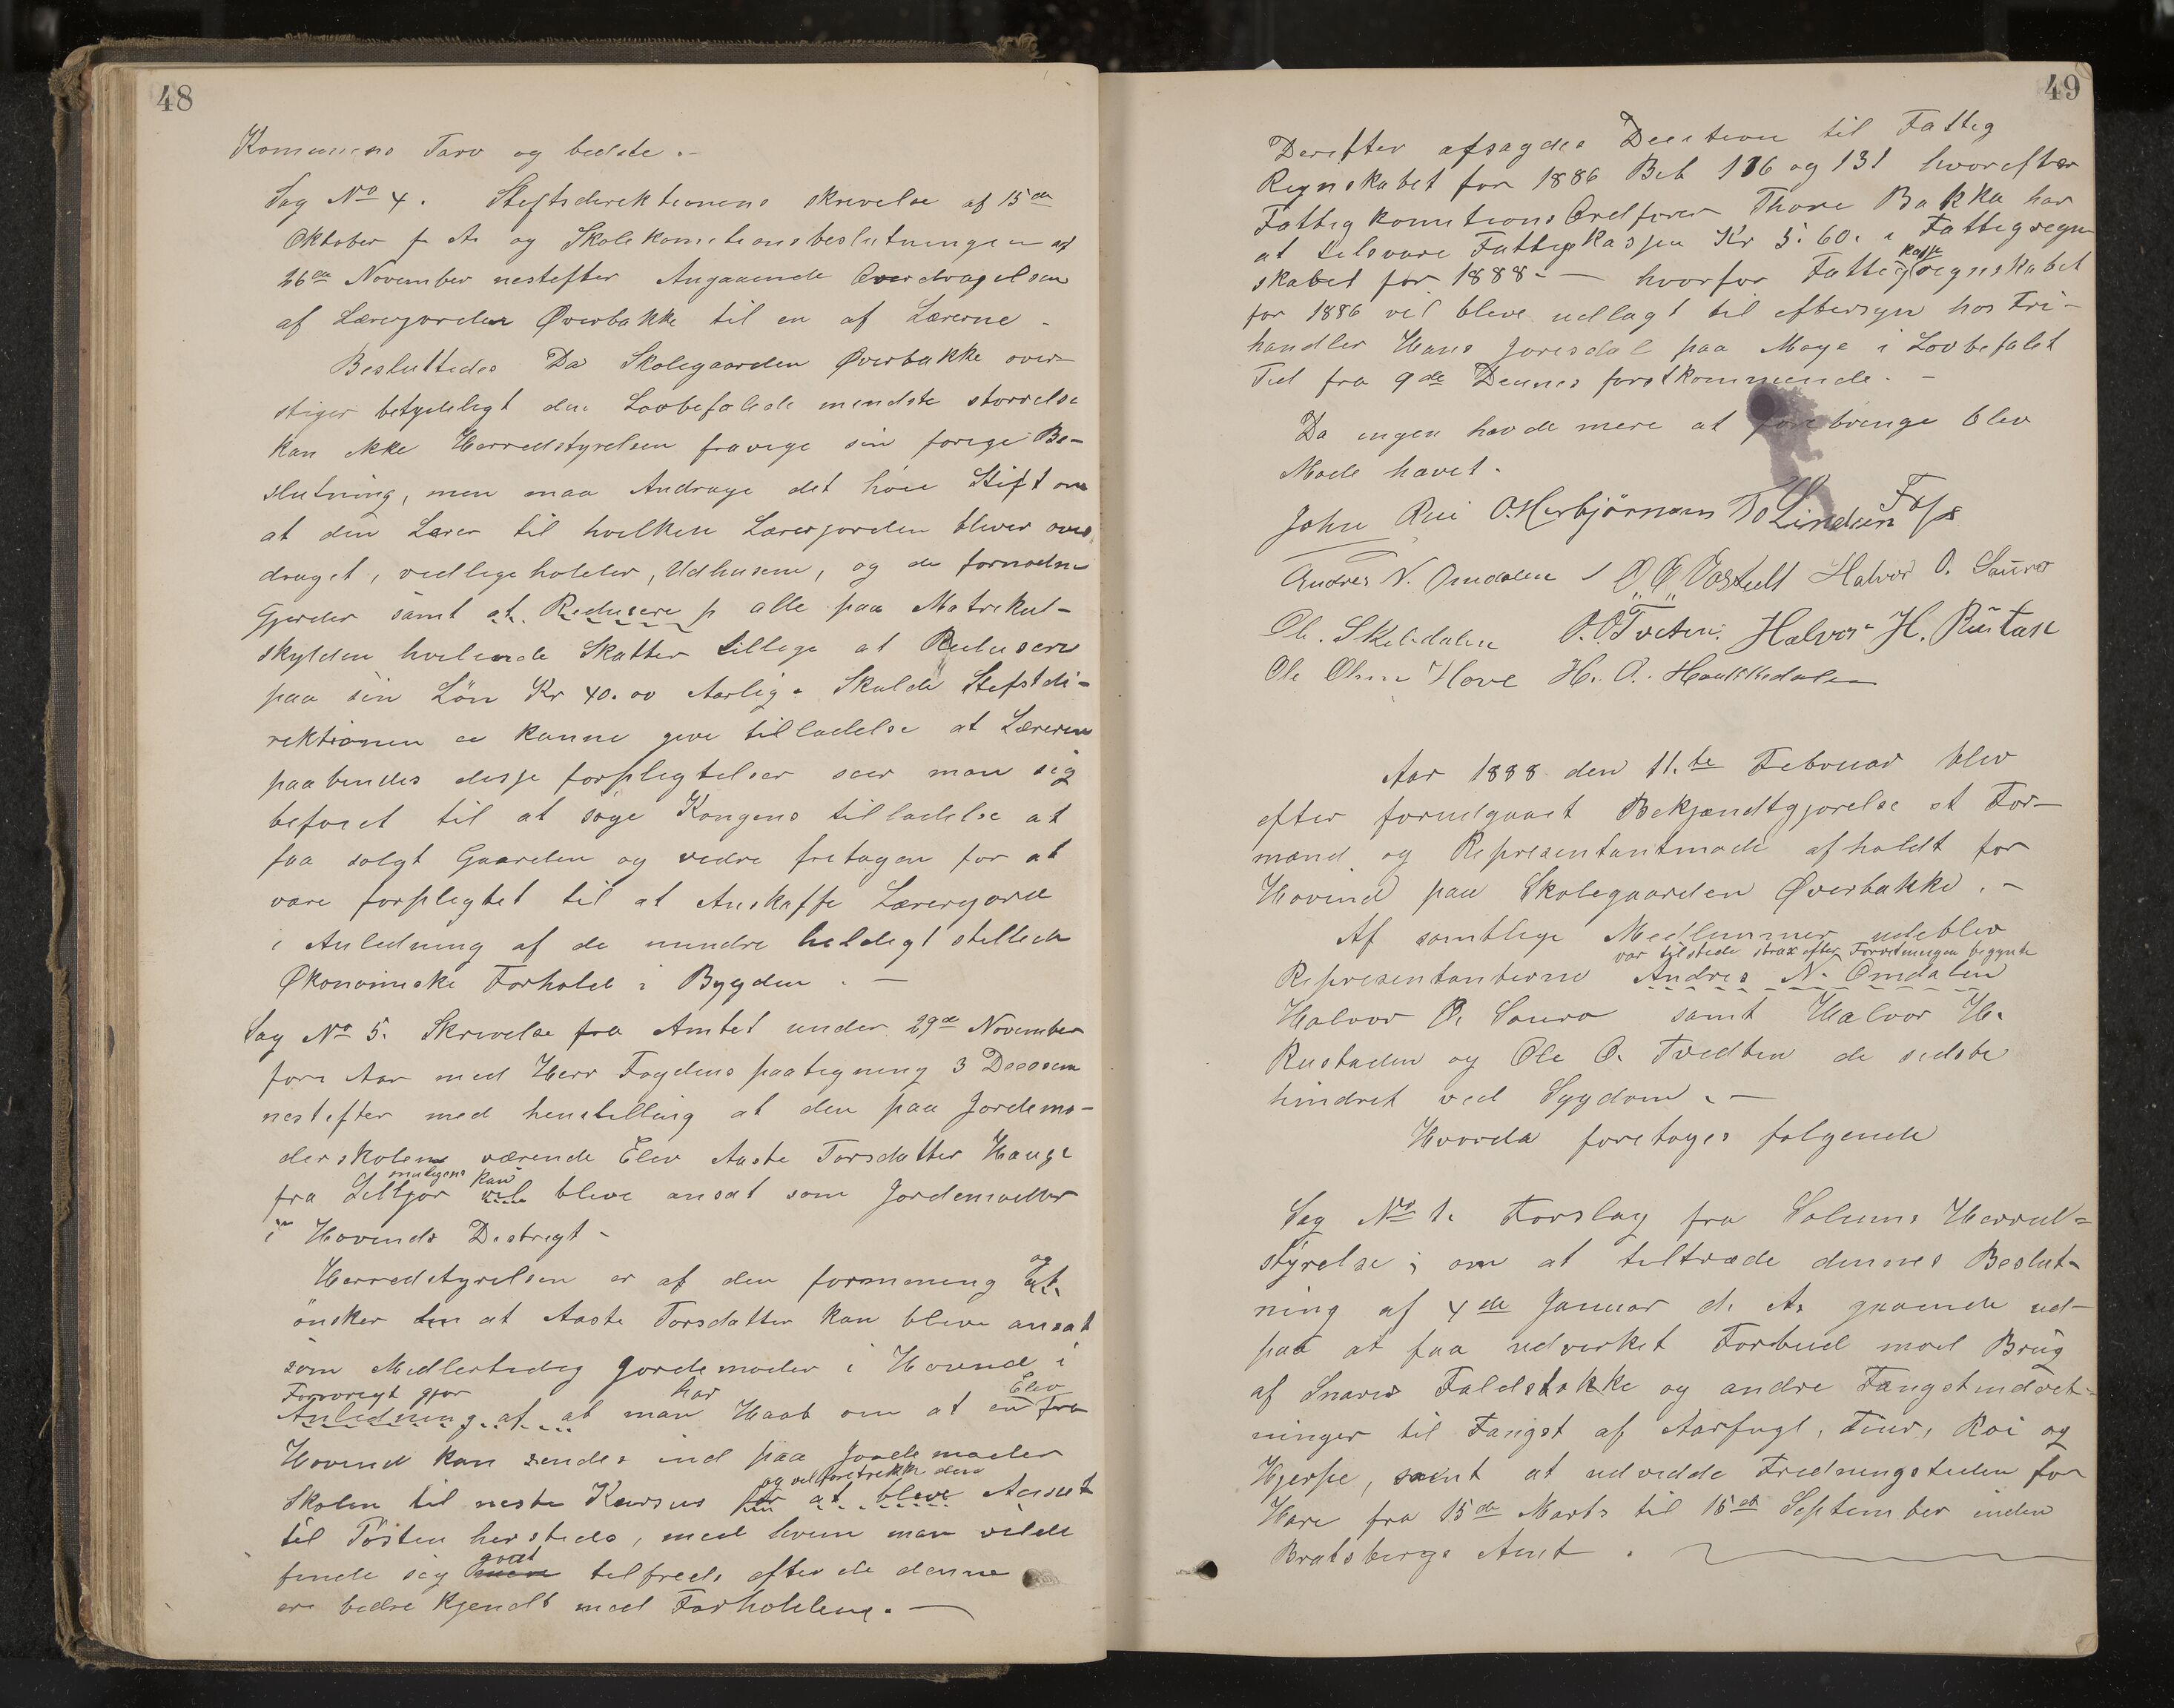 48
Kommunens Tarv og bedste.-
Sag No 4. Stiftsderektionens skrivelse af 15de
Oktober f. A. og Skolekomitionsbeslutningen af
26de November nestefter Angaaende Overdragelsen
af Lærerjorden Øverbakke til en af Lærerne -
Besluttedes Da Skolegaarden Øverbakke over-
stiger betydeligt den Lovbefalede mendste storrelse
kan ikke Herredstyrelsen fravige sin forrige Be-
slutning, men maa Andrage det höie Stift om
at den Lærer til hvilken Lærerjorden bliver over
draget, vedligeholder, Udhusene, og de fornødne
Gjerder samt at Redusere p alle paa Matrikul-
skylden hvilende Skatter tillige at Redusere
paa sin Lön Kr 40.00 Aarlig. Skulde Stifstdi-
rektionen ei kunne give tilladelse at Læreren
paabindes disse forpligtelser seer man sig
beføiet til at söge Kongens tilladelse at
faa solgt Gaarden og vedre fritagen for at
være forpligtet til at Anskaffe Lærerjord
i Anledning af de mindre heldigt stillede
Økonomiske Forhold i Bygden . -
Sag No 5. Skrivelse fra Amtet under 29de November
forr Aar med Herr Fogdens paategning 3 Decem
nestefter med henstilling at den paa Jordemo-
derskolen værende Elev Aaste Torsdatter Hauge
muligens kan
fra Lilljor vil blive ansat som Jordemoder
i Hovinds Destrigt -
og
Herredstyrelsen er af den formening at
önsker den at Aaste Torsdatter kan blive ansat
som Medlertidig Jordemoder i Hovind i
Forøvrigt gjør har Elev
Anledning af at man Haab om at en fra
Hovind kan sendes ind paa Jordemoder
og vil foretrekke den
Skolen til neste Kursus for at blive Ansat
til Posten hersteds, med hvem man vilde
godt
finde sig mere tilfreds efter de denne
er bedre Kjendt med Forholdene. -
49
Derefter afsagdes Decition til Fattig
Regnskabet for 1886 Beb 116 og 131 hvorefter
Fattigkomitions Ordfører Thore Bakka har
at tilsvare Fattigkassen Kr 5.60. i Fattigregn
kasse
skabet for 1888 - - hvorfor Fattigregnskabet
for 1886 vil blive udlagt til eftersyn hos Fri-
handler Hans Joresdal paa Moge i Lovbefalet
Tid fra 9de Dennes førstkommende. -
Da ingen havde mere at forebringe blev
Mode hævet.
John Rui O. Herbjörnsen T O Lindeen Fops
Andres N. Omdalen O. O. Vaskull Halvor O. Saura
Ole. Skeidalen O. O Tveten. Halvor H. Rustan
Ole Olsen Hove H. O. Haukkedalen
Aar 1888 den 11.te Februar blev
efter forudgaaet Bekjendtgjørelse et For-
mand og Representantmøde afholdt for
Hovind paa Skolegaarden Øverbakke. -
Af samtlige Medlemmer udeblev
var tilstede strax efter Forretningen begynte
Representanterne Andres N. Omdalen
Halvor O. Saura samt Halvor H.
Rustaden og Ole O. Tvedten de sidste
hindret ved Sygdom. -
Hvorda foretoges følgende
Sag No 1. Forslag fra Solums Herred-
styrelse; om at tiltræde dennes Beslut-
ning af 4de Januar d. A. gaaende ud-
paa at faa udvirket Forbud mod Brug
af Snarer Faldstokke og andre Fangstindret-
ninger til Fangst af Aarfugl, Tiur, Röi og
Hjerpe, samt at udvidde Fredningstiden for
Hare fra 15de Marts til 15de September inden
Bratsbergs Amt .